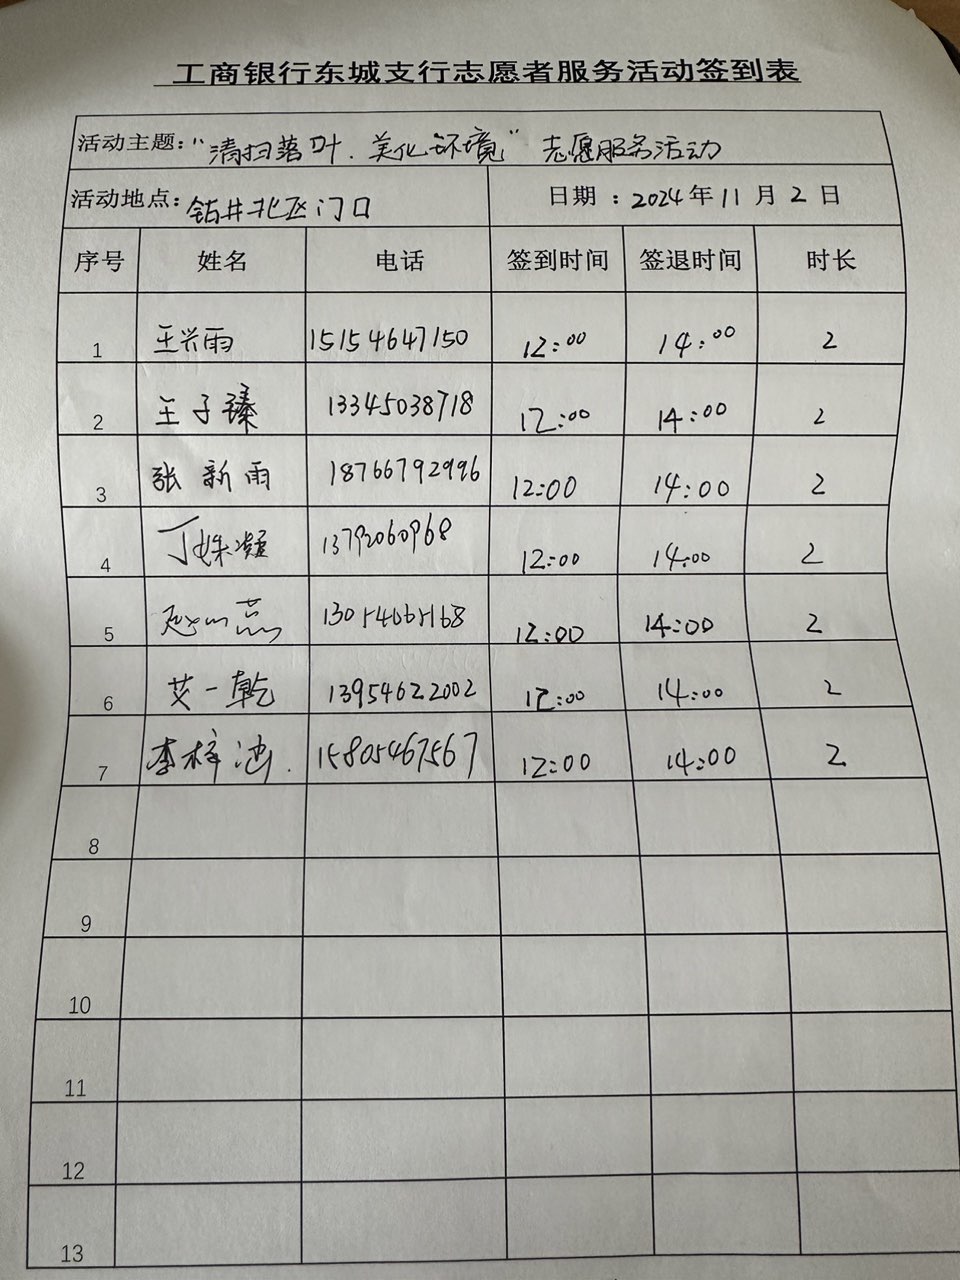 工商银行东城支行志愿者服务活动签到表
活动主题："清扫落叶.美化环境"志愿服务活动
活动地点：钻井北区门口 日期：2024年11月2日
序号 姓名 电话 签到时间 签退时间 时长
1 王兴雨 15154647150 12:00 14:00 2
2 王子臻 13345038718 12:00 14:00 2
3 张新雨 18766792996 12:00 14:00 2
4 丁姝凝 13792060968 12:00 14:00 2
5 12:00 14:00 2
6 艾一乾 13954622002 12:00 14:00 2
7 李梓涵. 15805467567 12:00 14:00 2
8
9
10
11
12
13